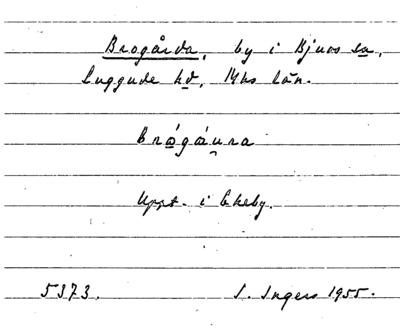 Brogårda, by i Bjuvs sn,
Luggude hd, Mhs län.
brǿgáu̯ra
Uppt. i Ekeby.
5373. I. Ingers 1955.